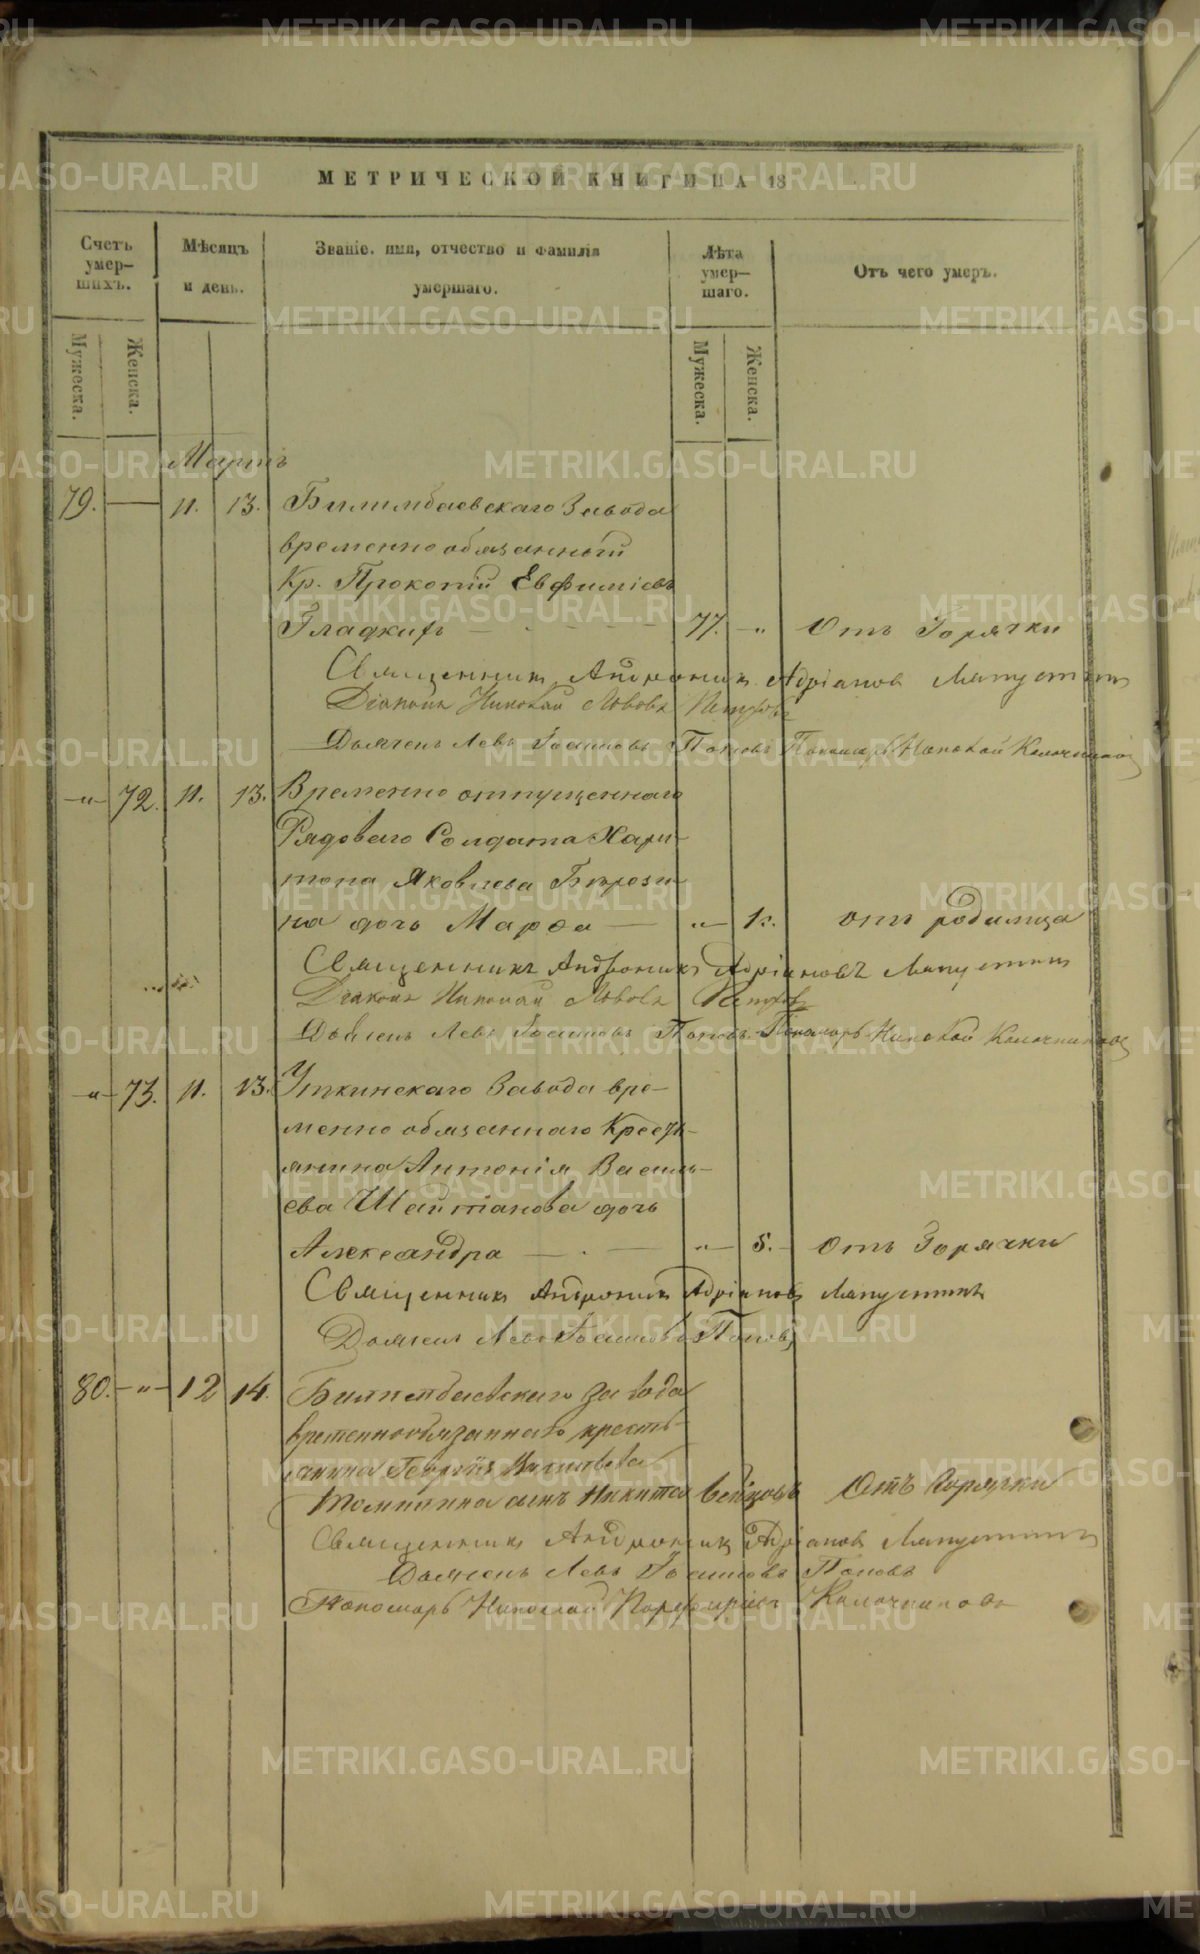 МЕТРИЧЕСКОЙ КНИГИ НА 18
Счетъ умер-шихъ.
Мѣсяцъ и день.
Званіе, имя, отчество и фамилія умершаго.
Лѣта умер-шаго.
Отъ чего умеръ.
Мужеска.
Женска.
Мужеска.
Женска.
Мартъ
79. 11. 13. Билимбаевскаго Завода
временнообязанный
Кр. Прокопій Евфиміевъ
Гладкихъ 77. - " Отъ Горячки
Священникъ Андроникъ Адріановъ Ляпустинъ
Діаконъ Николай Львовъ
Дьячекъ Левъ Іоанновъ Поповъ Пономарь Николай Колочниковъ
-"- 72. 11. 13. Временно отпущеннаго
Рядоваго Солдата Хари-
тона Яковлева Берези-
на дочь Марфа " отъ родимца
Священникъ Андроникъ Адріановъ Ляпустинъ
Діаконъ Николай Львовъ
Дьячекъ Левъ Іоанновъ Поповъ Пономарь Николай Колочниковъ
-"- 73. 11. 13. Уткинскаго Завода вре-
меннообязаннаго Кресть-
янина Антонія Василь-
ева Шайтанова дочь
Александра " 5. Отъ Горячки
Священникъ Андроникъ Адріановъ Ляпустинъ
Дьячекъ Левъ Іоанновъ Поповъ
80. -"- 12 14. Билимбаевскаго завода
временнообязаннаго кресть-
янина Георгія
сынъ Никита Отъ Горячки
Священникъ Андроникъ Адріановъ Ляпустинъ
Дьячекъ Левъ Іоанновъ Поповъ
Пономарь Николай Порфирьевъ Колочниковъ
METRIKI.GASO-URAL.RU